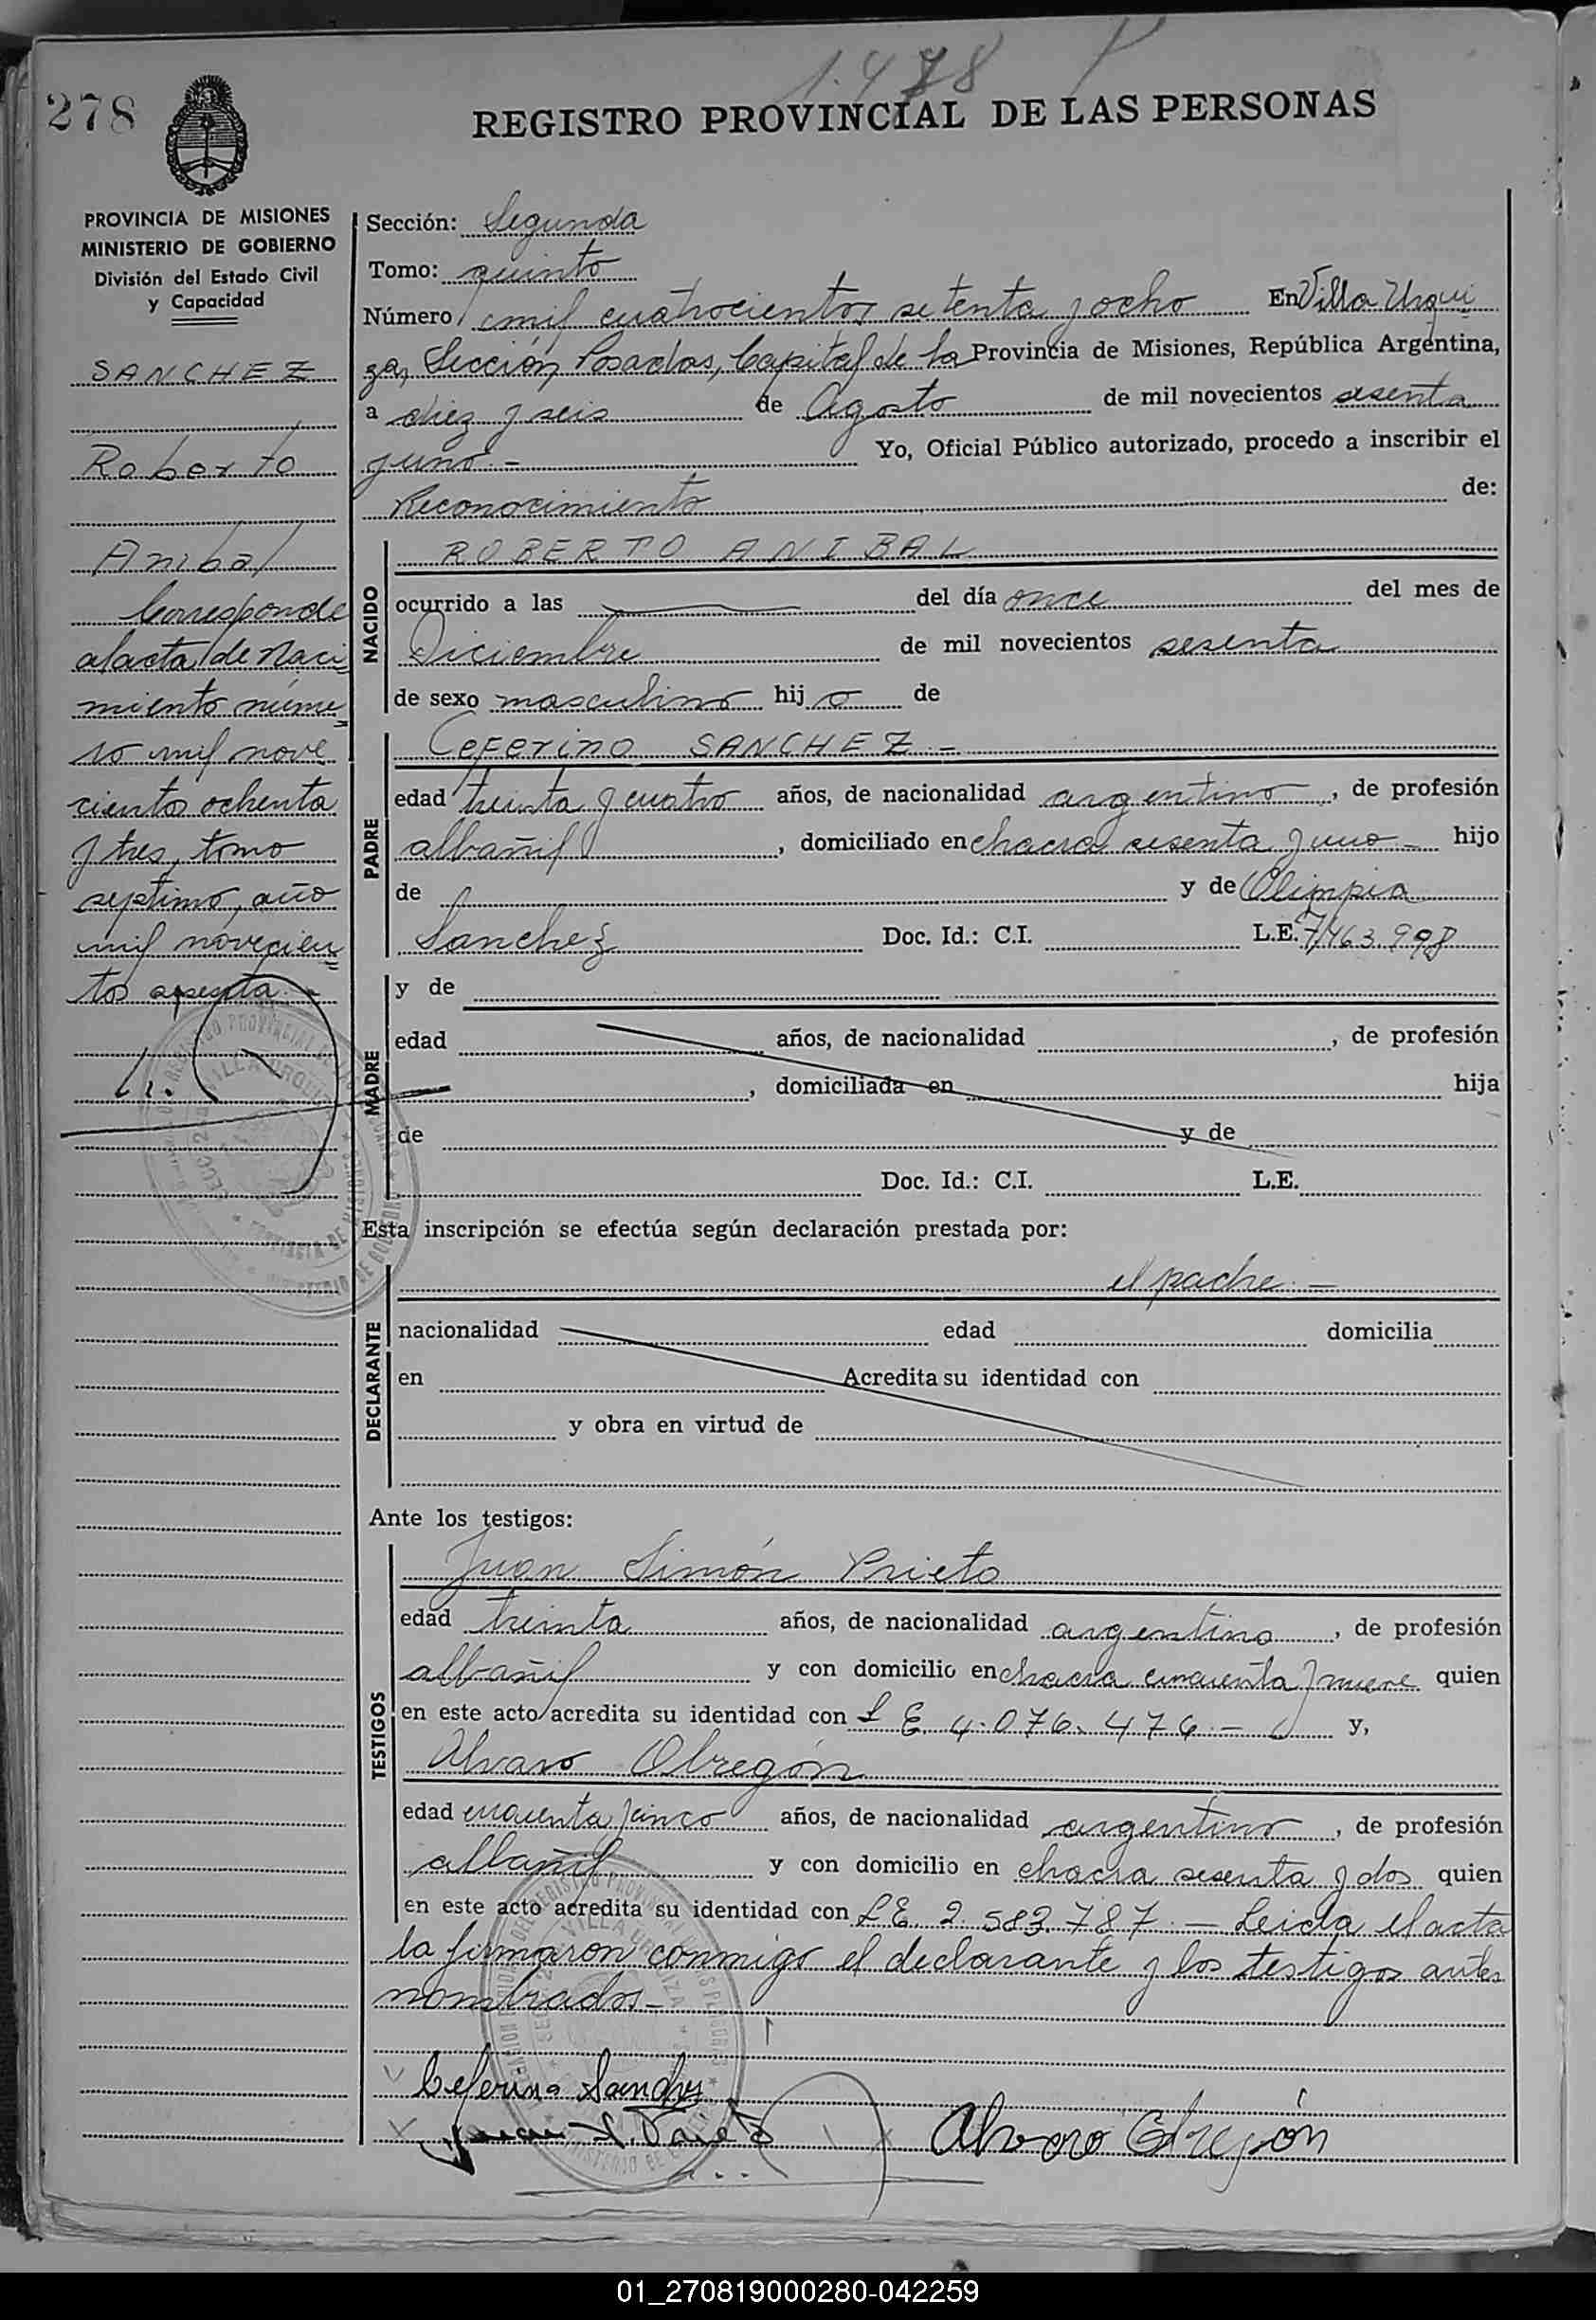 1.478
278
REGISTRO PROVINCIAL DE LAS PERSONAS
PROVINCIA DE MISIONES
MINISTERIO DE GOBIERNO
División del Estado Civil
y Capacidad
SANCHEZ
Roberto
Anibal
Corresponde
al acta de Naci
miento núme
ro mil nove
cientos ochenta
y tres, tomo
septimo, año
mil novecien
tos sesenta.-
Sección: Segunda
Tomo: quinto
Número mil cuatrocientos setenta y ocho En Villa Urqui
za, Sección Posadas, Capital de la Provincia de Misiones, República Argentina,
a diez y seis de Agosto de mil novecientos sesenta
y uno.- Yo, Oficial Público autorizado, procedo a inscribir el
Reconocimiento de:
NACIDO
ROBERTO ANIBAL
ocurrido a las del día once del mes de
Diciembre de mil novecientos sesenta
de sexo masculino hijo de
PADRE
Ceferino SANCHEZ.-
edad treinta y cuatro años, de nacionalidad argentino, de profesión
albañil, domiciliado en chacra sesenta y uno - hijo
de y de Olimpia
Sanchez Doc. Id.: C.I. L.E. 7.463.998
MADRE
y de
edad años, de nacionalidad , de profesión
, domiciliada en hija
de y de
Doc. Id.: C.I. L.E.
Esta inscripción se efectúa según declaración prestada por:
el padre.-
DECLARANTE
nacionalidad edad domicilia
en Acredita su identidad con
y obra en virtud de
Ante los testigos:
TESTIGOS
Juan Simón Prieto
edad treinta años, de nacionalidad argentino, de profesión
albañil y con domicilio en chacra cincuenta y nueve quien
en este acto acredita su identidad con L E. 4.076.476.- y,
Alvaro Obregón
edad cuarenta y cinco años, de nacionalidad argentino, de profesión
albañil y con domicilio en chacra sesenta y dos quien
en este acto acredita su identidad con L E. 2.583.787.- Leida el acta
la firmaron conmigo el declarante y los testigos antes
nombrados-
Ceferino Sanches
Juan S. Prieto
Alvaro Obregón
01_270819000280-042259